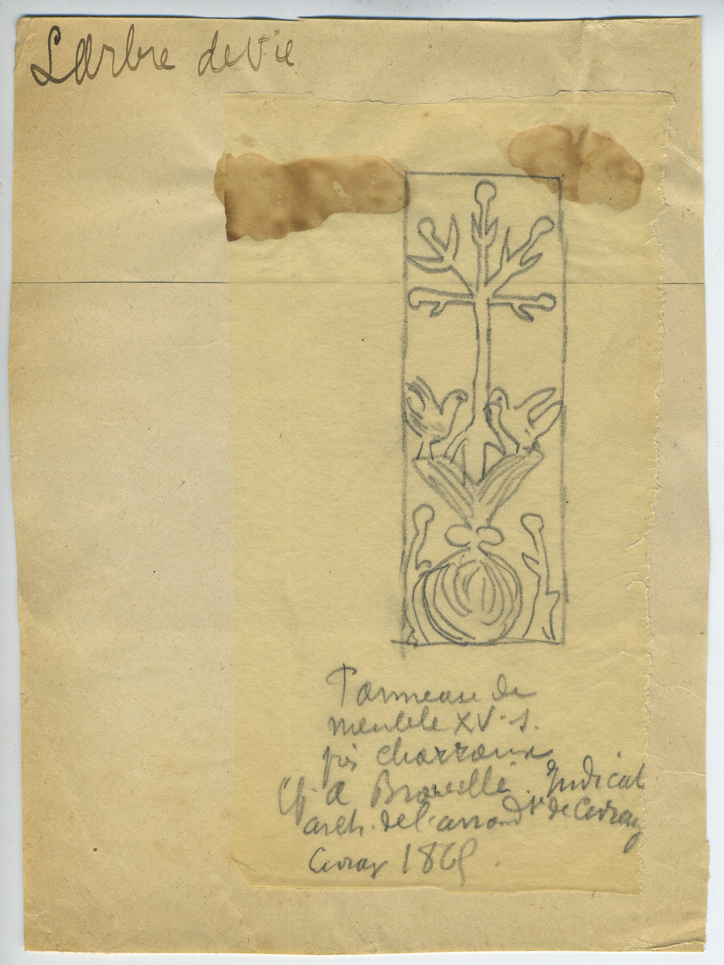 L'arbre de vie
Panneau de
meuble XV. s.
près Charroux
Cf. A Brouillet. Indicat
arch. de l'arrondt de Civray
Civray 1865.